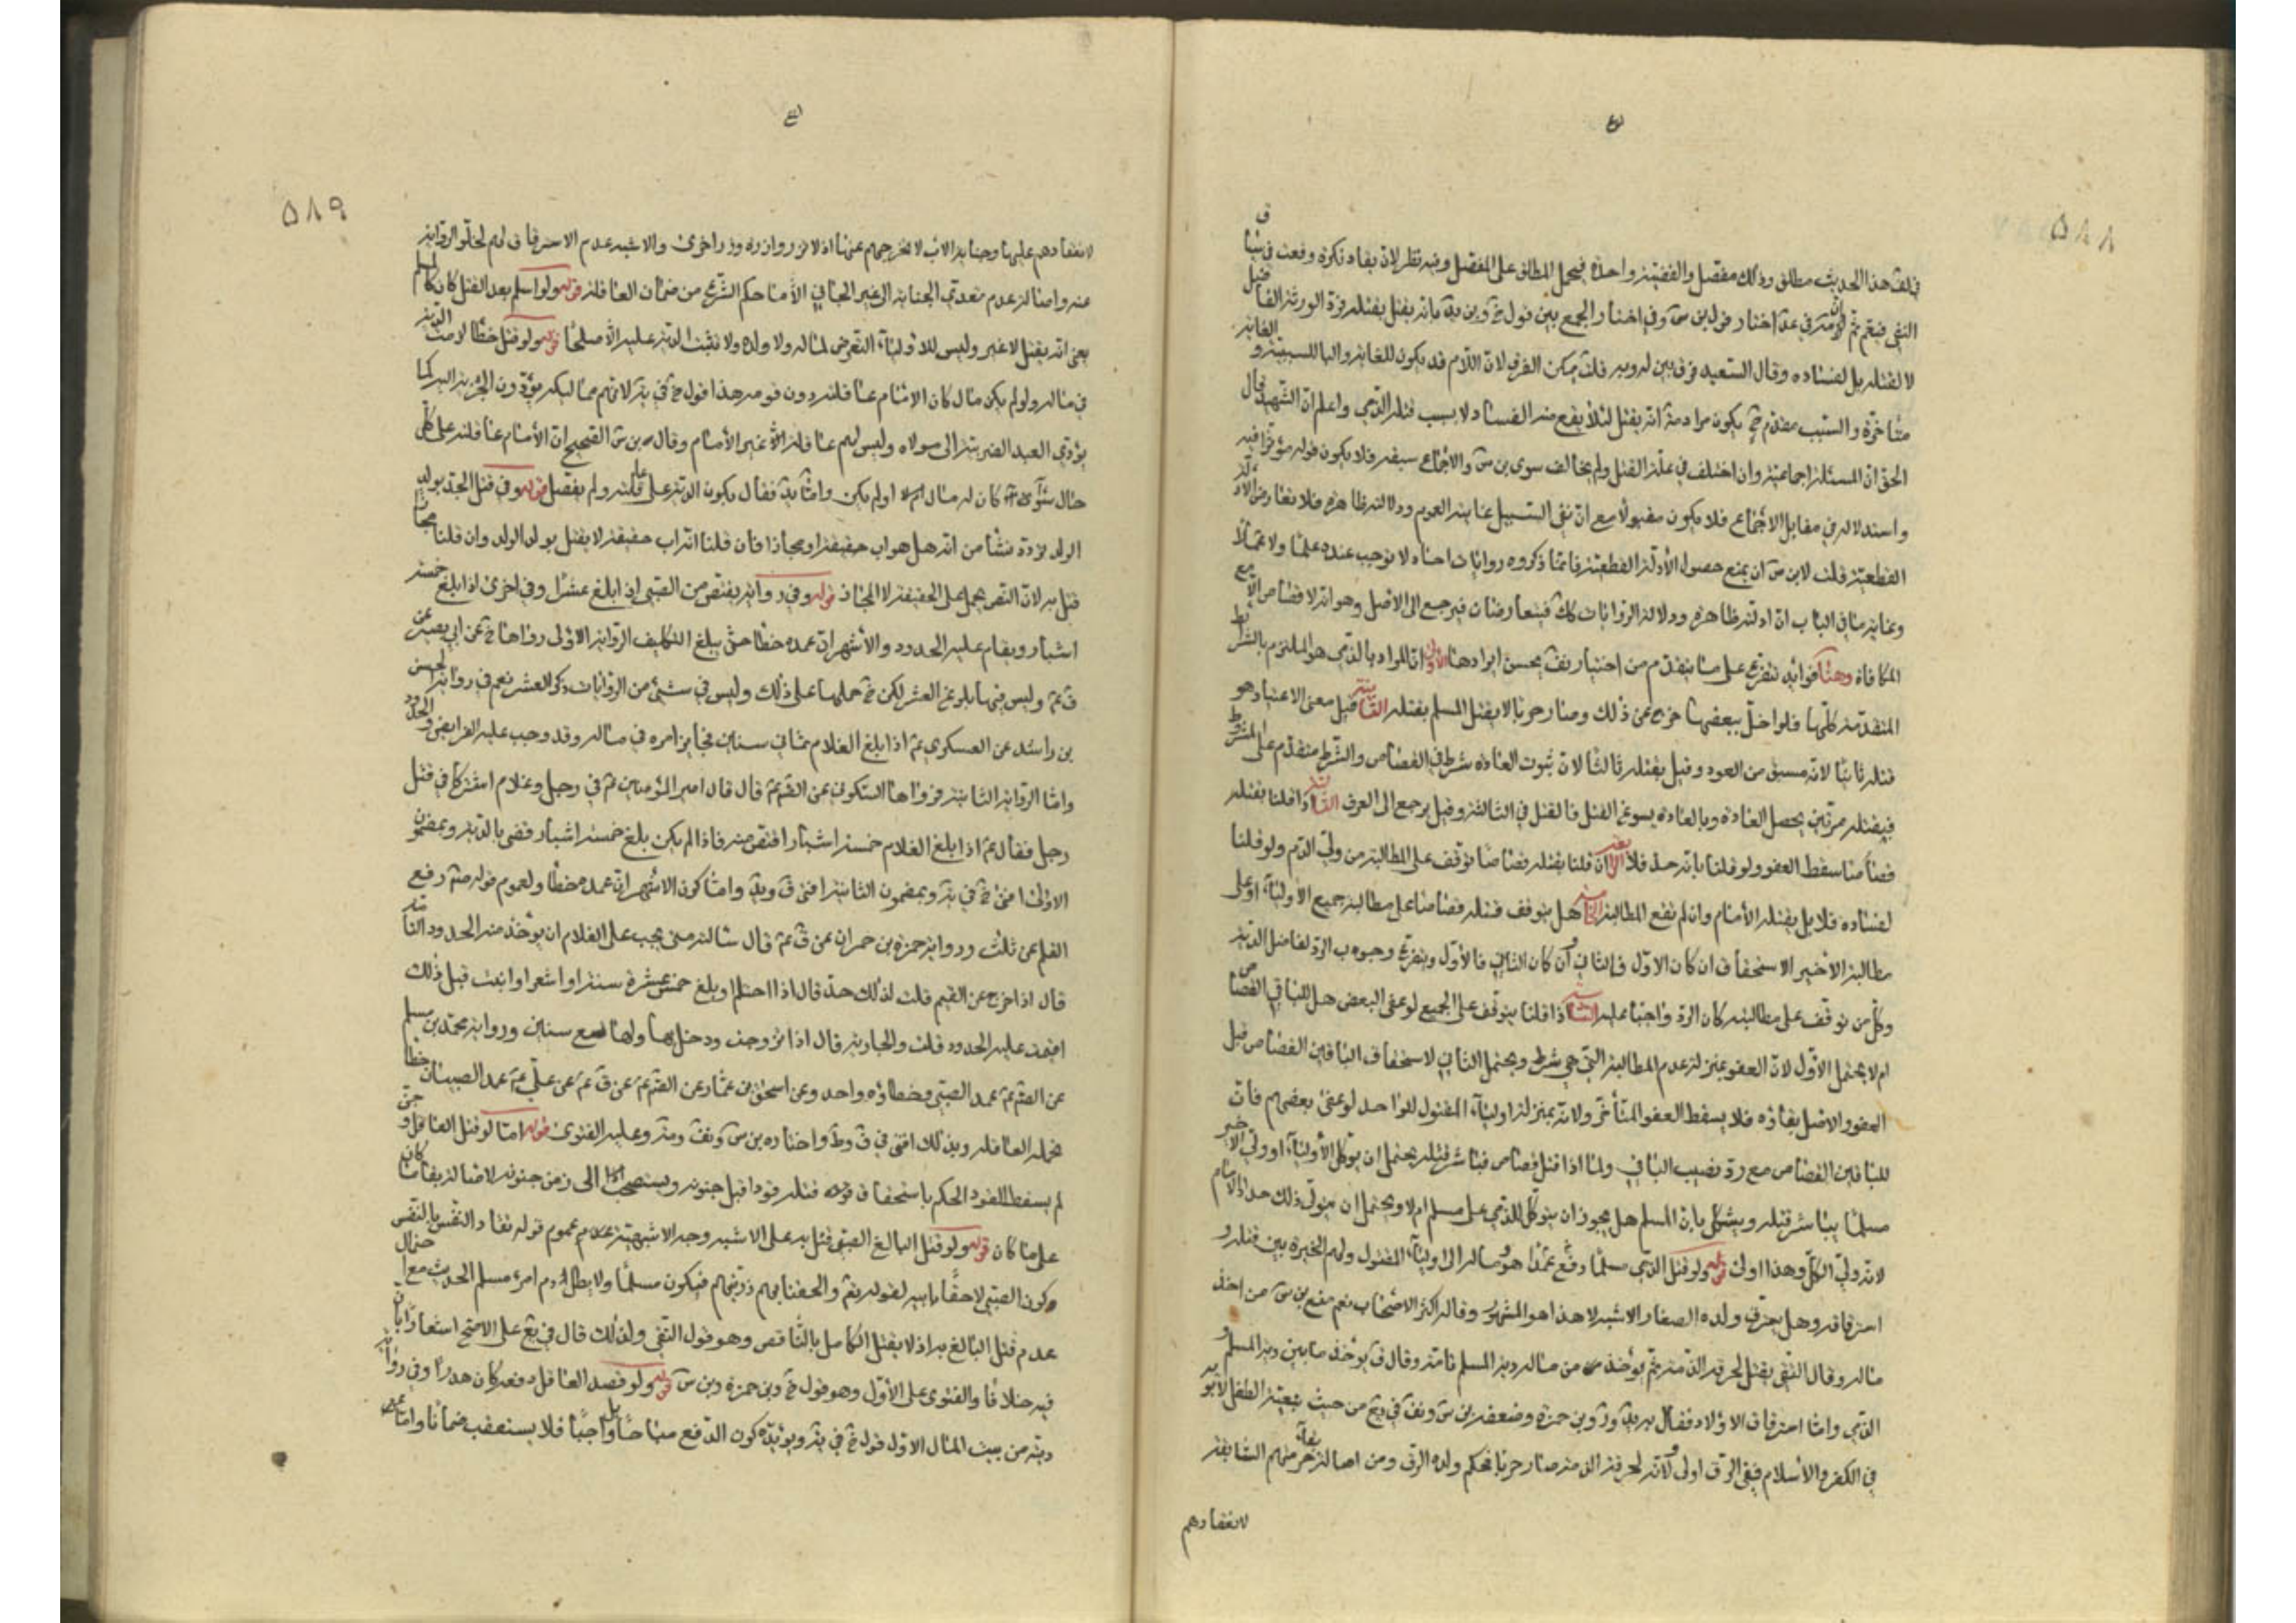 ٥٨٨
قلت هذا الحديث مطلق وذلك مفصل والقضية واحدة فيحمل المطلق على المفصل وفيه نظر لان يقاد نكرة وقعت في سياق
النفي فيعم ثم في عد اختار قول بن س وفي اختار الجمع بين قول خ وبن يه بانه يقتل بقتله قوة الورثة الفاضل
لا لقتله بل لفساده وقال السعيد فرق بين له وبه قلت يمكن الفرق لان اللام قد يكون للغاية والباء للسببية والغاية
متأخرة والسبب متقدم ح يكون مراده انه يقتل لئلا يقع منه الفساد لا بسبب قتله الذمي واعلم ان الشهيد قال
الحق ان المسئلة اجماعية وان اختلف في علة القتل ولم يخالف سوى بن س والاجماع سبقه فلا يكون قوله مؤثرا فيه
واستدلاله في مقابل الاجماع فلا يكون مقبولا مع ان نفى السبيل غايته العموم ودلالته ظاهرة فلا يعارض الادلة
القطعية قلت لابن س ان يمنع حصول الأدلة القطعية فانما ذكروه روايات احاد لا توجب عنده علما ولا عملا
وغاية ما في الباب ان ادلته ظاهرة ودلالة الروايات كك فيتعارضان فيرجع الى الاصل وهو انه لا قصاص الا مع
المكافاة وهنا فوائد تتفرع على ما تقدم من اختيار يحسن ايرادها الأولى ان المراد بالذمي هو الملتزم بالشرائط
المتقدمة كلها فلو اخل ببعضها خرج عن ذلك وصار حربيا لا يقتل المسلم بقتله الثانية قيل معنى الاعتياد هو
قتله ثانيا لانه مسبق من العود وقيل بقتله ثالثا لان ثبوت العادة شرط في القصاص والشرط متقدم على المشروط
فبقتله مرتين يحصل العادة وبالعادة يسوغ القتل فالقتل في الثالثة وقيل يرجع الى العرف الثالثة اذا قلنا بقتله
قصاصا سقط العفو ولو قلنا بانه حد فلا الرابعة ان قلنا بقتله قصاصا توقف على المطالبة من ولي الدم ولو قلنا
لفساده فلا بل يقتله الأمام وان لم تقع المطالبة الخامسة هل يتوقف قتله قصاصا على مطالبة جميع الأولياء او على
مطالبة الأخير الاستحقاق ان كان الاول فالثاني وان كان الثاني فالأول ويتفرع وجوب الرد لفاضل الدية
وكل من توقف على مطالبته كان الرد واجبا عليه السادسة اذا قلنا بتوقف على الجميع لو عفى البعض هل للباقي القصاص
ام لا يحتمل الأول لان العفو بمنزلة عدم المطالبة التي هي شرط ويحتمل الثاني لاستحقاق الباقين القصاص قبل
العفو والاصل بقاؤه فلا يسقط العفو المتأخر ولانه بمنزلة اولياء المقتول الواحد لو عفى بعضهم فان
للباقين القصاص مع رد نصيب الباقي ولنا اذا قتل قصاص فباشر قتله يحتمل ان يوكل الأولياء او ولي الاخير
مسلما يباشر قتله ويشكل بان المسلم هل يجوز ان يتوكل للذمي على مسلم ام لا ويحتمل ان يتولى ذلك حد الامام
لانه ولي الكل وهذا اولى قوله ولو قتل الذمي مسلما عمدا دفع هو وماله الى اولياء المقتول ولهم الخيرة بين قتله و
استرقاقه وهل يسترق ولده الصغار الاشبه لا هذا هو المشهور وقاله اكثر الاصحاب نعم منع بن س من اخذ
ماله وقال التقي يقتل لخرقه الذمة ثم يؤخذ من ماله دية المسلم تامة وقال ق يؤخذ ما بين دية المسلم و
الذمي واما استرقاق الاولاد فقال به يد ور وبن حمزة وضعفه بن س في يع من حيث تبعية الطفل لأبويه
في الكفر والأسلام ففي الرق اولى ولانه لخرقه الذمة صار حربيا فحكم ولده الرق ومن اصالة بقاء حريتهم السابقة
لانعقادهم
٥٨٩
لانعقادهم عليها وجناية الاب لا تخرجهم عنها اذ لا تزر وازرة وزر اخرى والاشبه عدم الاسترقاق لهم لخلو الرواية
عنه واصالة عدم تعدي الجناية الى غير الجاني الا ما حكم الشرع من ضمان العاقلة قوله ولو اسلم بعد القتل كان كالمسلم
يعني انه يقتل لا غير وليس للاولياء التعرض لماله ولا ولده ولا تثبت الدية عليه الا صلحا قوله ولو قتل خطأ لزمت الدية
في ماله ولو لم يكن مال كان الامام عاقلته دون قومه هذا قول خ في ية لانهم مماليك يؤدون الجزية اليه كما
يؤدي العبد الضريبة الى مولاه وليس لهم عاقلة الا غير الأمام وقال بن س الصحيح ان الأمام عاقلته على كل
حال سواء كان له مال او لم يكن واما يد فقال يكون الدية على عاقلته ولم يفصل قوله وفي قتل الجد بولد
الولد تردد منشأ من انه هل هو اب حقيقة او مجازا فان قلنا انه اب حقيقة لا يقتل بولد الولد وان قلنا مجازا
قتل به لان النص يحمل على الحقيقة لا المجاز قوله وفي رواية يقتص من الصبي اذا بلغ عشرا وفي اخرى اذا بلغ خمسة
اشبار ويقام عليه الحدود والأشهر ان عمده خطأ حتى يبلغ التكليف الرواية الأولى رواها خ عن ابي بصير عن
ق ع وليس فيها بلوغ العشر لكن خ حملها على ذلك وليس في شيء من الروايات ذكر العشر نعم في رواية الحسن
بن راشد عن العسكري ع اذا بلغ الغلام ثماني سنين فجايز امره في ماله وقد وجب عليه الفرايض والحدود
واما الرواية الثانية فرواها السكوني عن الص ع قال قال امير المؤمنين ع في رجل وغلام اشتركا في قتل
رجل فقال ع اذا بلغ الغلام خمسة اشبار اقتص منه فاذا لم يكن بلغ خمسة اشبار قضى بالدية وبمضمون
الاولى افتى خ في ية وبمضمون الثانية افتى ق ويد واما كون الاشهر ان عمده خطأ ولعموم قوله ص رفع
القلم عن ثلث ورواية حمزة بن حمران عن ق ع قال سالته متى يجب على الغلام ان يؤخذ منه الحدود التامة
قال اذا خرج عن اليتم قلت لذلك حد قال اذا احتلم او بلغ خمس عشرة سنة او اشعر او انبت قبل ذلك
اقيمت عليه الحدود قلت والجارية قال اذا تزوجت ودخل بها ولها تسع سنين ورواية محمد بن مسلم
عن الص ع عمد الصبي وخطاؤه واحد وعن اسحق بن عمار عن الص ع عن ق ع عن علي ع عمد الصبيان خطأ
تحمله العاقلة وبذلك افتى في ف وط واختاره بن س ومة وعليه الفتوى قوله اما لو قتل العاقل و جن
لم يسقط القود الحكم باستحقاق قتله قودا قبل جنونه ويستصحب الى زمن جنونه لاصالة بقاء ما كان
على ما كان قوله ولو قتل البالغ الصبي قتل به على الاشبه وجه الاشبهية عموم قوله تعالى النفس بالنفس
وكون الصبي لاحقا بابيه لقوله تع والحقنا بهم ذريتهم فيكون مسلما ولا يطل دم امرء مسلم الحديث مع احتمال
عدم قتل البالغ به اذ لا يقتل الكامل بالناقص وهو قول التقي ولذلك قال في يع على الاصح اشعارا بان
فيه خلافا والفتوى على الأول وهو قول خ وبن حمزة وبن س قوله ولو قصد العاقل دفعه كان هدرا وفي رواية
ديته من بيت المال الاول قول خ في ية ويؤيده كون الدفع مباحا بل واجبا فلا يستعقب ضمانا واما